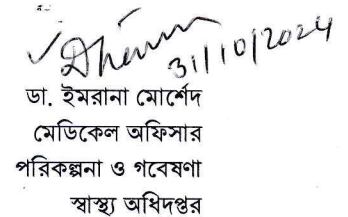 31/10/2024
ডা. ইমরানা মোর্শেদ
মেডিকেল অফিসার
পরিকল্পনা ও গবেষণা
স্বাস্থ্য অধিদপ্তর